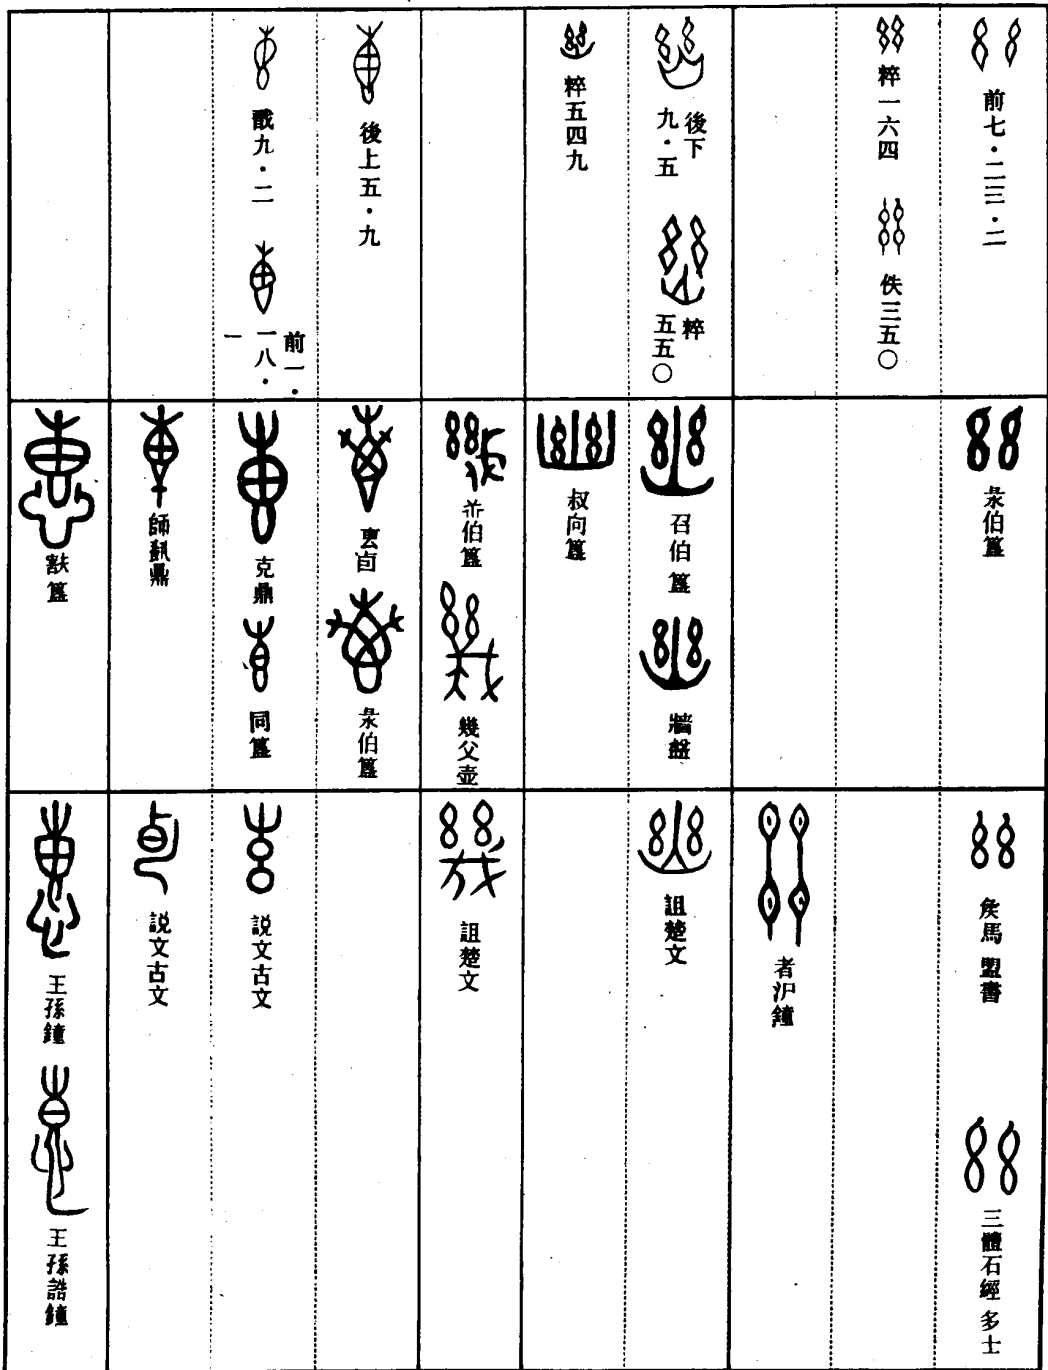 前七·二三·二
粹一六四
佚三五〇
後下
九·五
粹
五五〇
粹五四九
後上五·九
戩九·二
前一·
一八·
一
彔伯簋
召伯簋
牆盤
叔向簋
伯簋
幾父壺
彔伯簋
克鼎
同簋
師𩛥鼎
㝬簋
侯馬盟書
三體石經 多士
者沪鐘
詛楚文
詛楚文
説文古文
説文古文
王孫鐘
王孫誥鐘